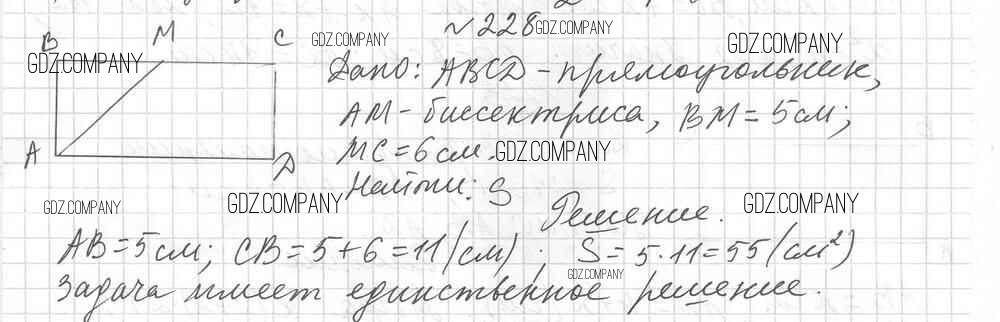 №228
B M C
Дано: ABCD - прямоугольник,
AM - биссектриса, BM = 5 см;
MC = 6 см.
A D
Найти: S
Решение.
AB = 5 см; CB = 5 + 6 = 11 (см); S = 5 · 11 = 55 (см²)
Задача имеет единственное решение.
GDZ.COMPANY
GDZ.COMPANY
GDZ.COMPANY
GDZ.COMPANY
GDZ.COMPANY
GDZ.COMPANY
GDZ.COMPANY
GDZ.COMPANY
GDZ.COMPANY